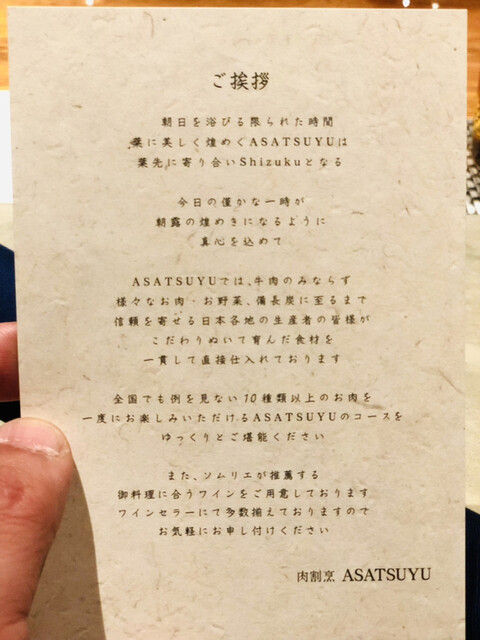 ご挨拶
朝日を浴びる限られた時間
葉に美しく煌めくASATSUYUは
葉先に寄り合いShizukuとなる
今日の僅かな一時が
朝露の煌めきになるように
真心を込めて
ASATSUYUでは、牛肉のみならず
様々なお肉・お野菜、備長炭に至るまで
信頼を寄せる日本各地の生産者の皆様が
こだわりぬいて育んだ食材を
一貫して直接仕入れております
全国でも例を見ない10種類以上のお肉を
一度にお楽しみいただけるASATSUYUのコースを
ゆっくりとご堪能ください
また、ソムリエが推薦する
御料理に合うワインをご用意しております
ワインセラーにて多数揃えておりますので
お気軽にお申し付けください
肉割烹 ASATSUYU